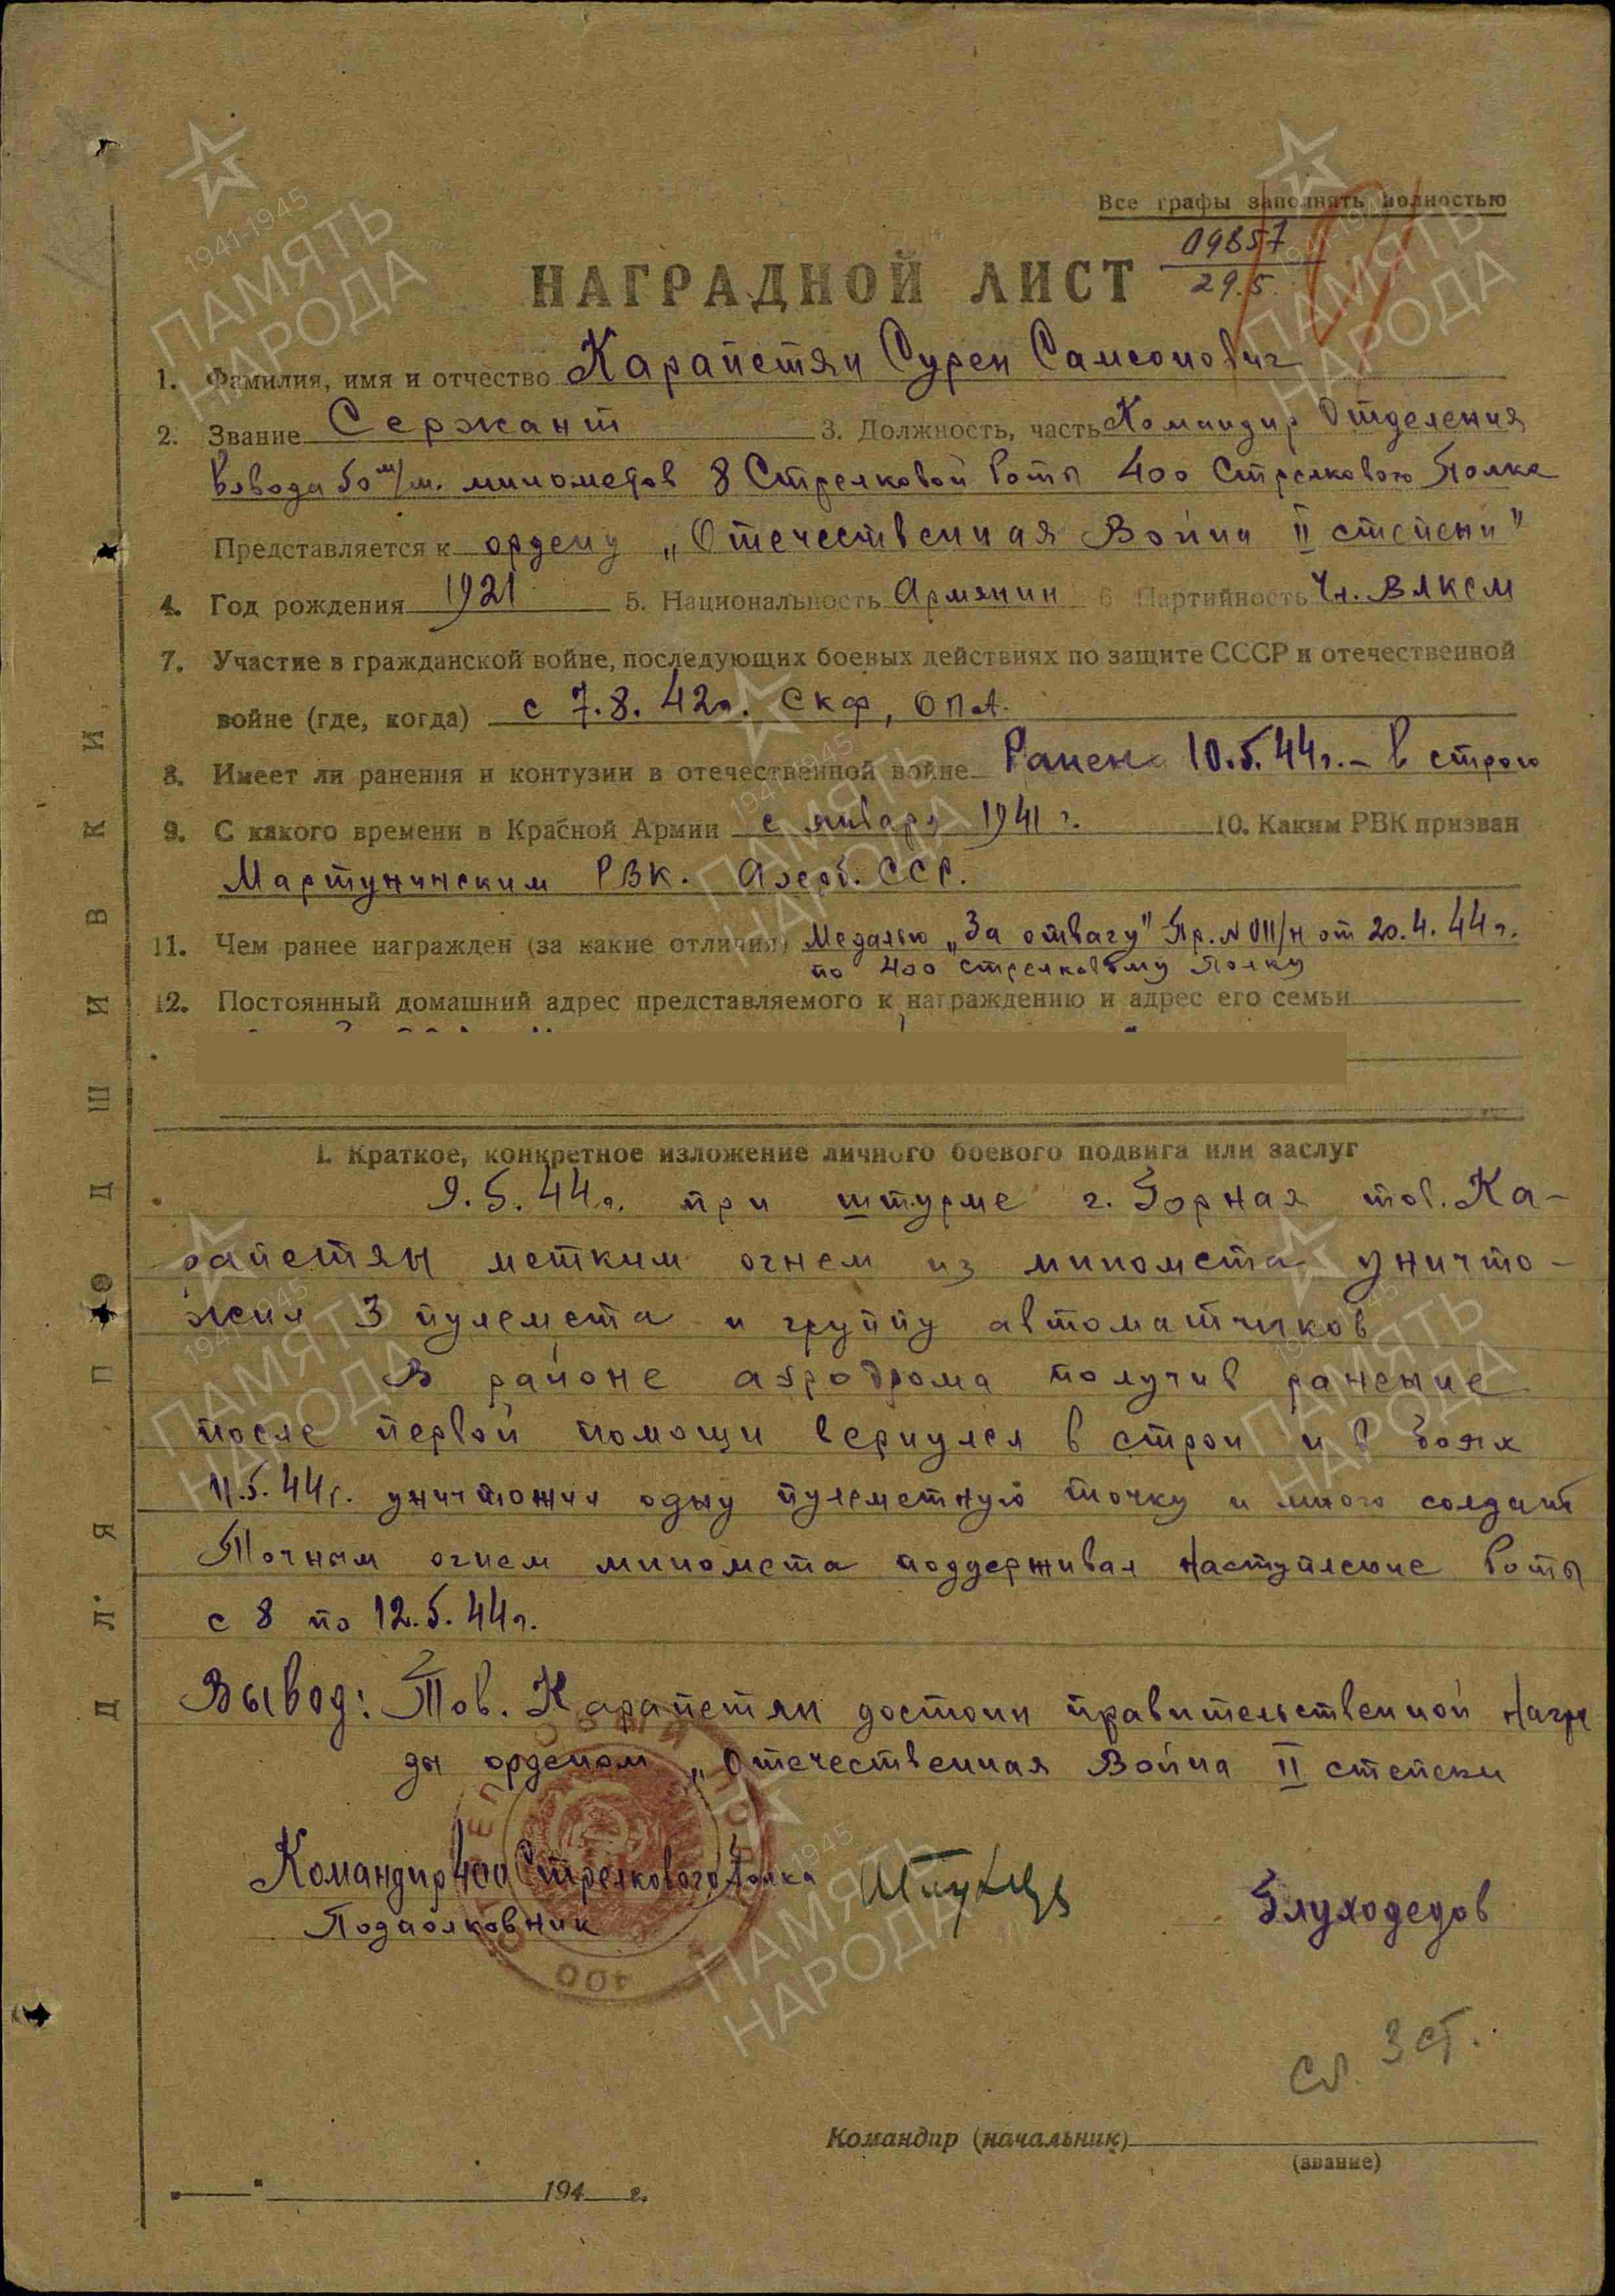 Все графы заполнять полностью
09857
29.5.
НАГРАДНОЙ ЛИСТ
1. Фамилия, имя и отчество Карапетян Сурен Самсонович
2. Звание Сержант 3. Должность, часть Командир Отделения
взвода 50 м/м. минометов 8 Стрелковой Роты 400 Стрелкового Полка
Представляется к ордену „Отечественная Война II степени"
4. Год рождения 1921 5. Национальность Армянин 6 Партийность Чл. ВЛКСМ
7. Участие в гражданской войне, последующих боевых действиях по защите СССР и отечественной
войне (где, когда) с 7.8.42г. СКФ, ОПА.
8. Имеет ли ранения и контузии в отечественной войне Ранен 10.5.44г. – в строю
9. С какого времени в Красной Армии с января 1941 г. 10. Каким РВК призван
Мартунинским РВК. Азерб. ССР.
11. Чем ранее награжден (за какие отличия) Медалью „За отвагу" Пр. N 011/н от 20.4.44г.
по 400 стрелковому Полку
12. Постоянный домашний адрес представляемого к награждению и адрес его семьи
1. Краткое, конкретное изложение личного боевого подвига или заслуг
9.5.44г. при штурме г. Горная тов. Ка-
рапетян метким огнем из миномета уничто-
жил 3 пулемета и группу автоматчиков
В районе аэродрома получив ранение
после первой помощи вернулся в строй и в боях
11.5.44г. уничтожил одну пулеметную точку и много солдат
Точным огнем миномета поддерживал наступление роты
с 8 по 12.5.44г.
Вывод: Тов. Карапетян достоин правительственной нагр
ды орденом „Отечественная Война II степени
Командир 400 Стрелкового Полка
Подполковник
Глуходедов
400
сл. 3 ст.
Командир (начальник)
(звание)
194 г.
ДЛЯ ПОДШИВКИ
1941-1945
ПАМЯТЬ
НАРОДА
1941-1945
ПАМЯТЬ
НАРОДА
1941-1945
ПАМЯТЬ
НАРОДА
1941-1945
ПАМЯТЬ
НАРОДА
1941-1945
ПАМЯТЬ
НАРОДА
1941-1945
ПАМЯТЬ
НАРОДА